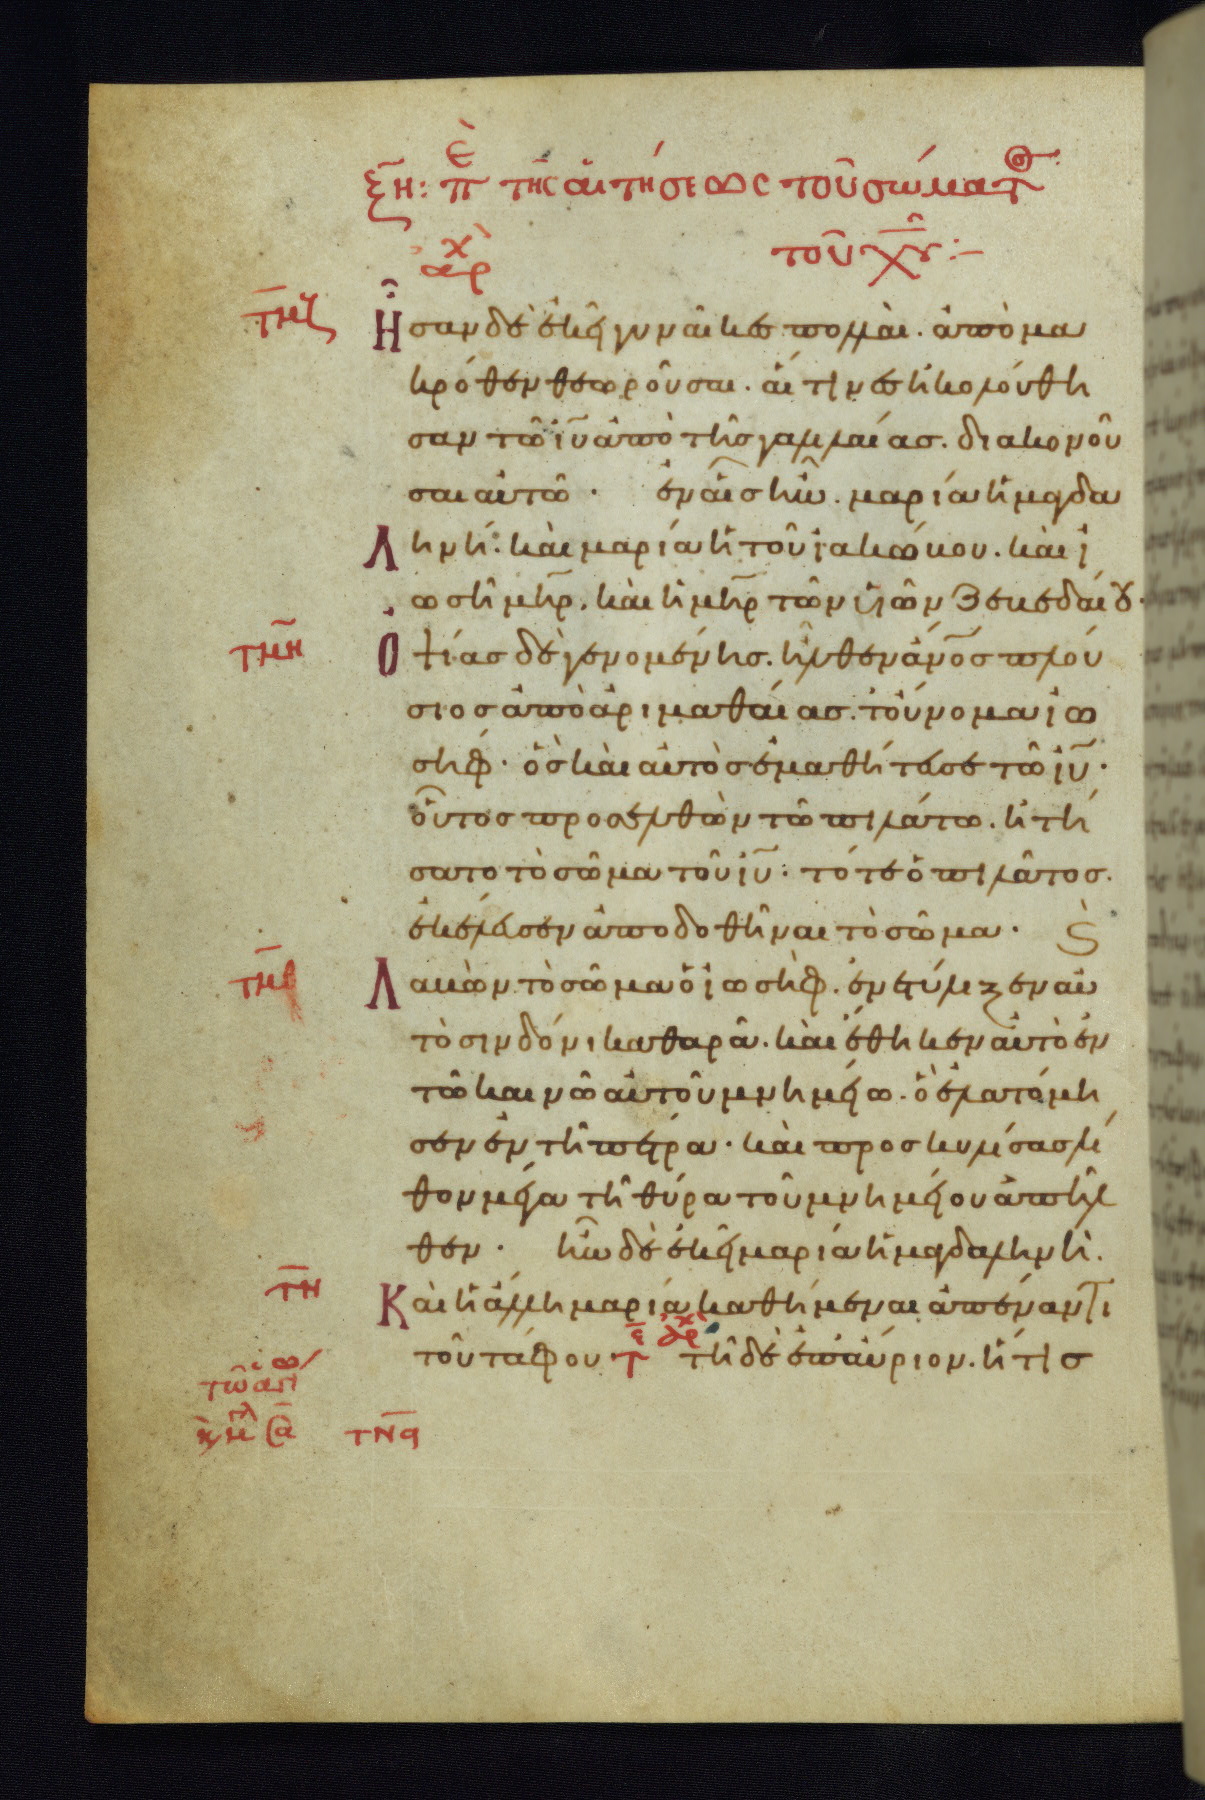 ξη: περὶ τῆς αἰτήσεως τοῦ σώματος
ἀρχ τοῦ χυ:-
τμζ Ἦσαν δὲ ἐκεῖ γυναῖκες πολλαὶ. ἀπὸ μα
κρόθεν θεωροῦσαι. αἵτινες ἠκολούθη
σαν τῶ ιυ ἀπὸ τῆς γαλιλαίας. διακονοῦ
σαι αὐτῶ. ἐν αἷς ἦν. μαρία ἡ μαγδα
Ληνή. καὶ μαρία ἡ τοῦ ἰακώβου. καὶ ἰ
ωσῆ μηρ. καὶ ἡ μηρ τῶν υἱῶν ζεβεδαίου.
τμη Ὀψίας δὲ γενομένης. ἦλθεν ἀνος πλού
σιος ἀπὸ ἀριμαθαίας. τοὔνομα ἰω
σήφ. ὃς καὶ αὐτὸς ἐμαθήτευσε τῶ ιυ.
οὗτος προσελθὼν τῶ πιλάτω. ἠτή
σατο τὸ σῶμα τοῦ ιυ. τότε ὁ πιλᾶτος.
ἐκέλευσεν ἀποδοθῆναι τὸ σῶμα. καὶ
τμθ Λαβὼν τὸ σῶμα ὁ ἰωσὴφ. ἐνετύλιξεν αὐ
τὸ σινδόνι καθαρᾶ. καὶ ἔθηκεν αὐτὸ ἐν
τῶ καινῶ αὐτοῦ μνημείω. ὃ ἐλατόμη
σεν ἐν τῆ πέτρα. καὶ προσκυλίσας λί
θον μέγα τῆ θύρα τοῦ μνημείου ἀπῆλ
θεν. ἦν δὲ ἐκεῖ μαρία ἡ μαγδαληνὴ.
τν Καὶ ἡ ἄλλη μαρία καθήμεναι ἀπέναντι
τοῦ τάφου τε ἀρχ τῆ δὲ ἐπαύριον. ἥτις
τνα